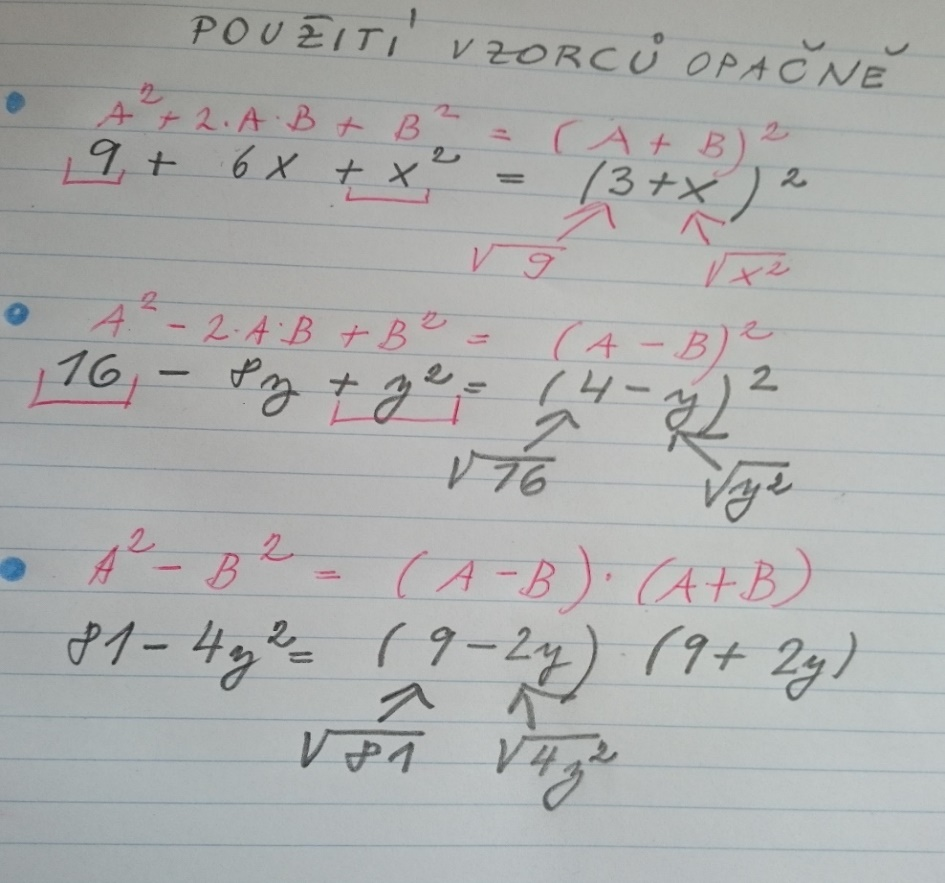 POUŽITÍ VZORCŮ OPAČNĚ
A² + 2·A·B + B² = (A + B)²
9 + 6x + x² = (3 + x)²
√9 √x²
A² - 2·A·B + B² = (A - B)²
16 - 8y + y² = (4 - y)²
√16 √y²
A² - B² = (A - B)·(A + B)
81 - 4y² = (9 - 2y)·(9 + 2y)
√81 √4y²